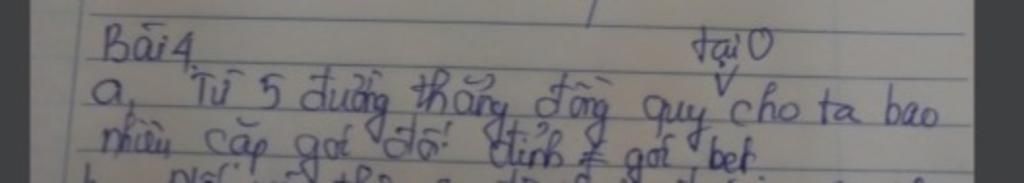 Bài 4
tại O
a, Từ 5 đường thẳng đồng quy cho ta bao
nhiêu cặp góc đối đỉnh ≠ góc bẹt